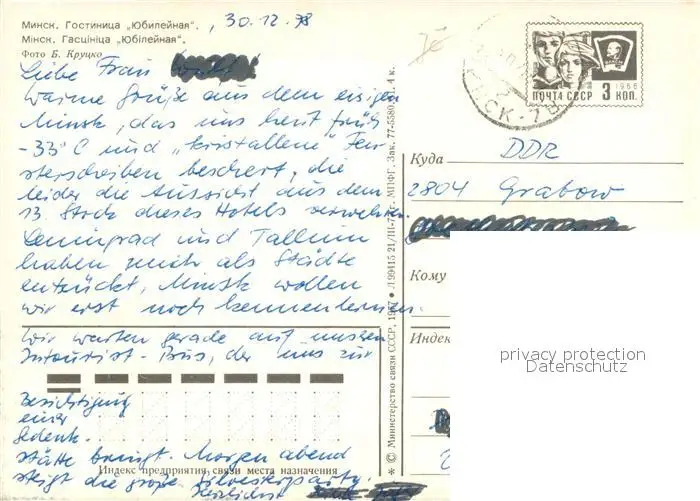 Минск. Гостиница „Юбилейная". , 30.12.78
Мінск. Гасцініца „Юбілейная".
Фото Б. Круцко
Liebe Frau
Warme Grüße aus dem eisigen
Minsk, das uns heut früh
-33°C und „kristallene" Fen-
sterscheiben beschert, die
leider die Aussicht aus dem
13. Stock dieses Hotels verwehren.
Leningrad und Tallinn
haben mich als Städte
entzückt, Minsk wollen
wir erst noch kennenlernen.
Wir warten gerade auf unseren
Intourist-Bus, der uns zur
Besichtigung
einer
Gedenk-
stätte bringt. Morgen abend
steigt die große Silvesterparty.
Herzlichst
Индекс предприятия связи места назначения
* © Министерство связи СССР, 1977 • Л 99415 21/III-77 г. МПФГ. Зак. 77-5580. Ц. 4 к.
ПОЧТА СССР 3 КОП.
1966
Куда DDR
2804 Grabow
Кому
Индек
privacy protection
Datenschutz